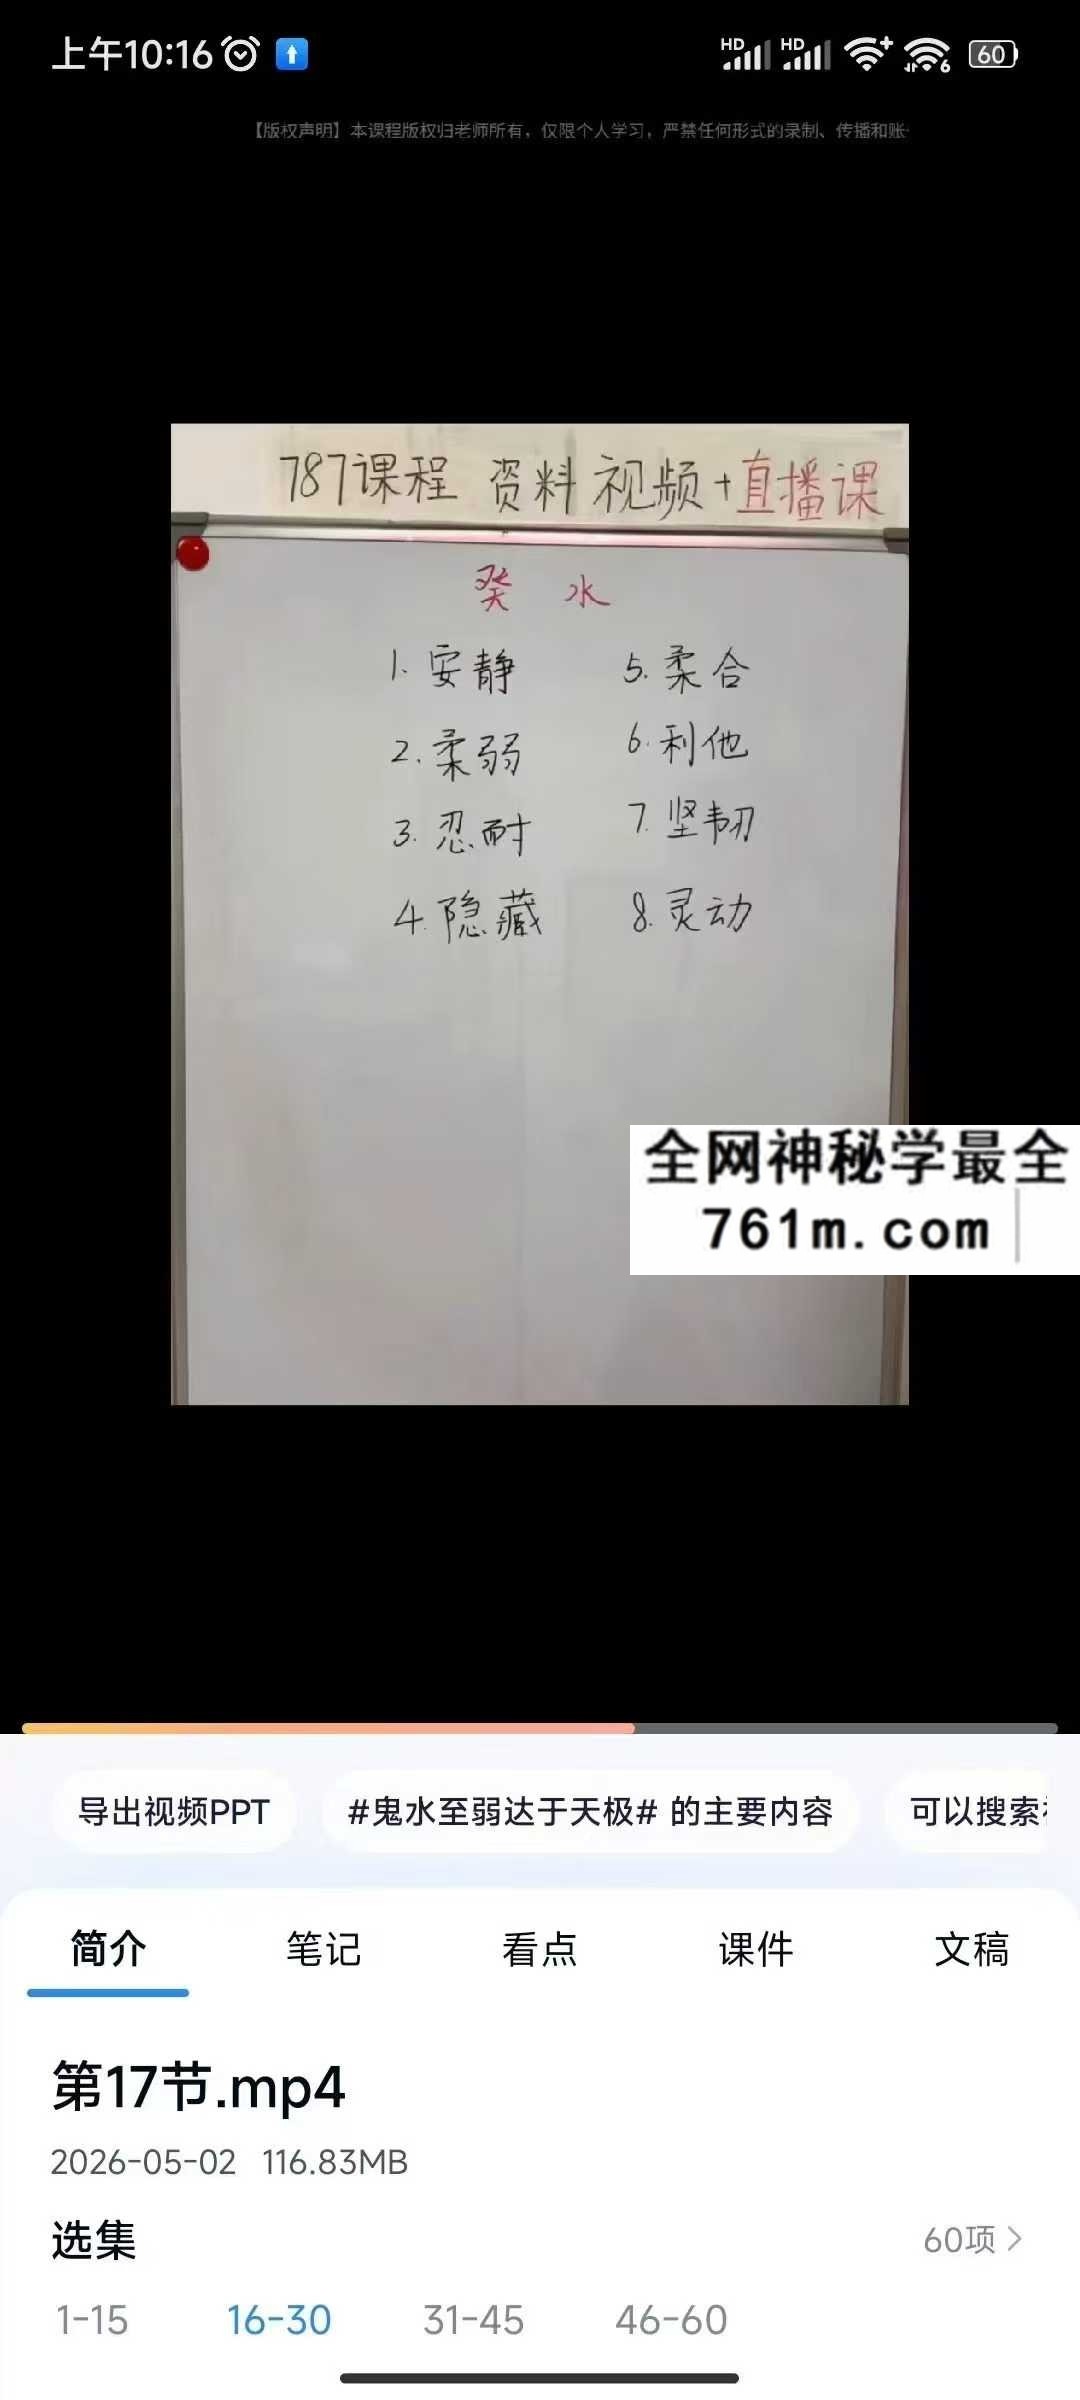 上午10:16
HD HD 6 60
【版权声明】本课程版权归老师所有，仅限个人学习，严禁任何形式的录制、传播和账
787课程 资料 视频+直播课
癸 水
1. 安静
2. 柔弱
3. 忍耐
4. 隐藏
5. 柔合
6. 利他
7. 坚韧
8. 灵动
全网神秘学最全
761m.com
导出视频PPT
#鬼水至弱达于天极# 的主要内容
可以搜索
简介 笔记 看点 课件 文稿
第17节.mp4
2026-05-02 116.83MB
选集 60项
1-15 16-30 31-45 46-60